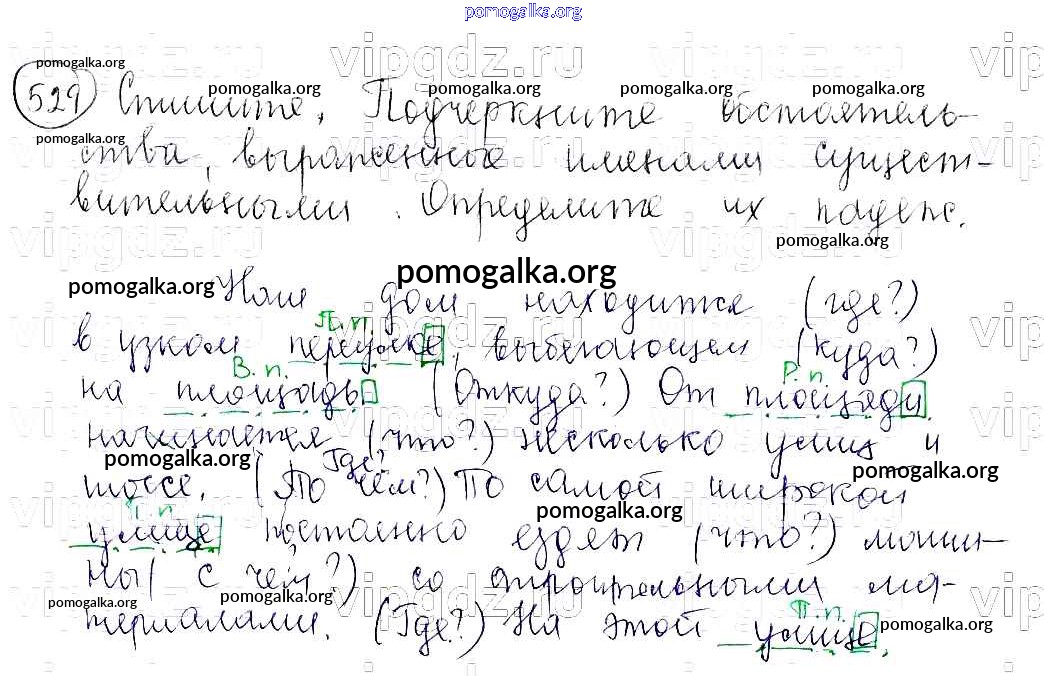 pomogalka.org
529 Спишите. Подчеркните обстоятель-
ства, выраженные именами сущест-
вительными. Определите их падеж.
Наш дом находится (где?)
П.п.
в узком переулке, выбегающем (куда?)
В.п. Р.п.
на площадь (Откуда?) От площади
начинается (что?) несколько улиц и
Где?
шоссе. (По чём?) По самой широкой
п
улице постоянно ездят (что?) маши-
ны (с чем?) со строительными ма-
П.п.
териалами. (Где?) На этой улице
vipgdz.ru
pomogalka.org